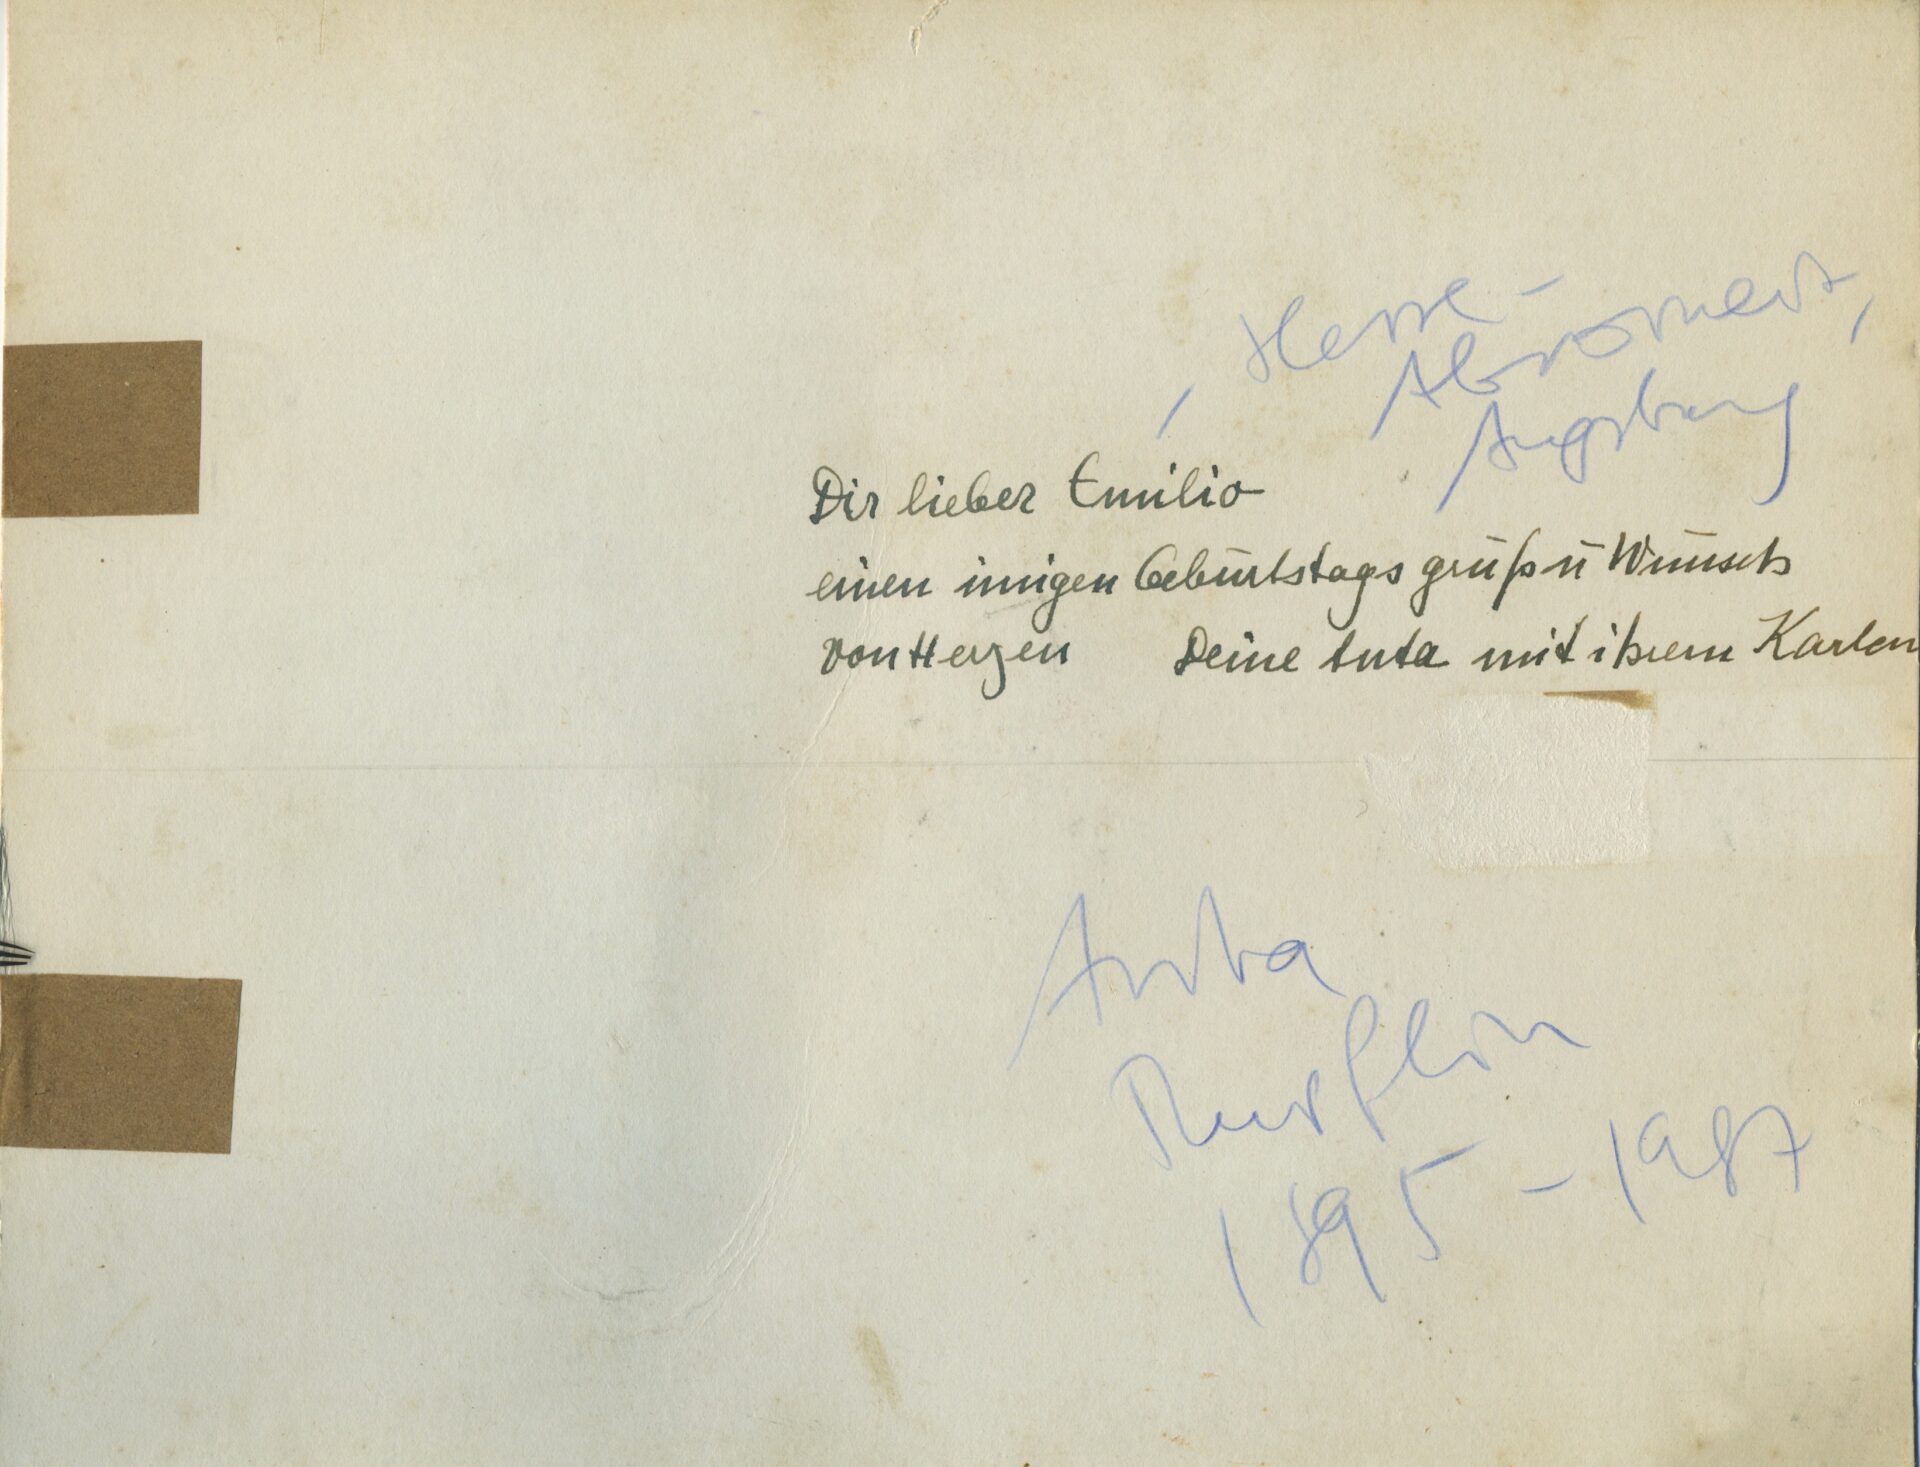 , Hesse-
Abromeit,
Augsburg
Dir lieber Emilio
einen innigen Geburtstagsgruß u Wunsch
von Herzen Deine Anta mit ihrem Karlen
Anta
Rupflin
1895-1987